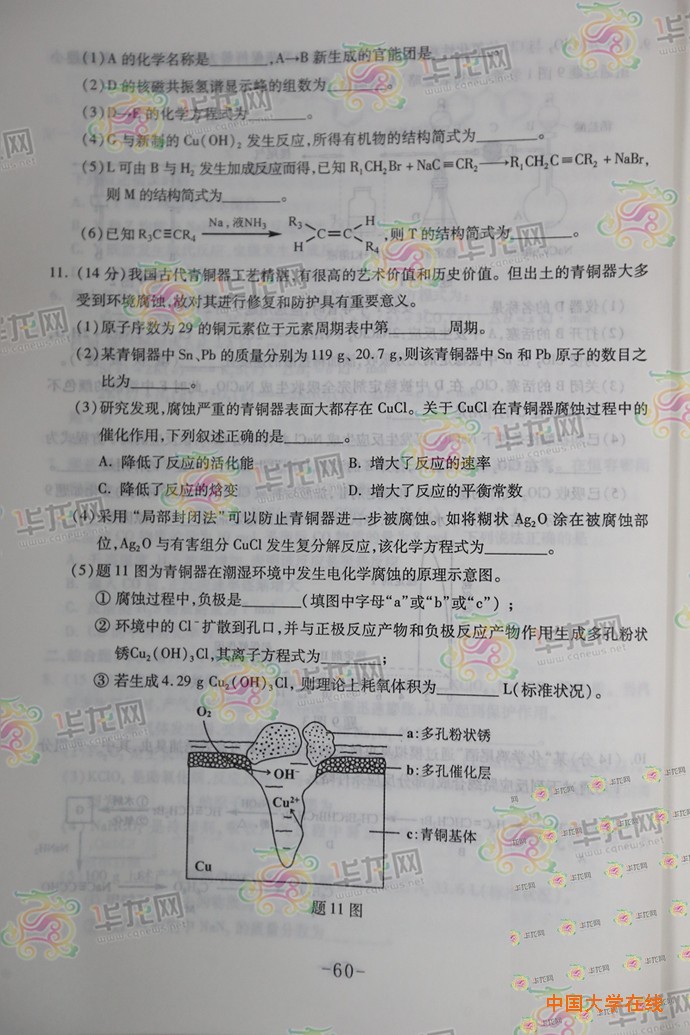 (1)A 的化学名称是________,A→B 新生成的官能团是________。
(2)D 的核磁共振氢谱显示峰的组数为________。
(3)D→E 的化学方程式为________。
(4)G 与新制的 Cu(OH)₂ 发生反应,所得有机物的结构简式为________。
(5)L 可由 B 与 H₂ 发生加成反应而得,已知 R₁CH₂Br + NaC≡CR₂ ⟶ R₁CH₂C≡CR₂ + NaBr,
则 M 的结构简式为________。
(6)已知 R₃C≡CR₄ Na,液NH₃ R₃ H C=C H R₄ ,则 T 的结构简式为________。
11. (14 分)我国古代青铜器工艺精湛,有很高的艺术价值和历史价值。但出土的青铜器大多
受到环境腐蚀,故对其进行修复和防护具有重要意义。
(1)原子序数为 29 的铜元素位于元素周期表中第________周期。
(2)某青铜器中 Sn、Pb 的质量分别为 119 g、20.7 g,则该青铜器中 Sn 和 Pb 原子的数目之
比为________。
(3)研究发现,腐蚀严重的青铜器表面大都存在 CuCl。关于 CuCl 在青铜器腐蚀过程中的
催化作用,下列叙述正确的是________。
A. 降低了反应的活化能 B. 增大了反应的速率
C. 降低了反应的焓变 D. 增大了反应的平衡常数
(4)采用“局部封闭法”可以防止青铜器进一步被腐蚀。如将糊状 Ag₂O 涂在被腐蚀部
位,Ag₂O 与有害组分 CuCl 发生复分解反应,该化学方程式为________。
(5)题 11 图为青铜器在潮湿环境中发生电化学腐蚀的原理示意图。
① 腐蚀过程中,负极是________(填图中字母“a”或“b”或“c”);
② 环境中的 Cl⁻ 扩散到孔口,并与正极反应产物和负极反应产物作用生成多孔粉状
锈Cu₂(OH)₃Cl,其离子方程式为________;
③ 若生成 4.29 g Cu₂(OH)₃Cl,则理论上耗氧体积为________L(标准状况)。
O₂
a:多孔粉状锈
b:多孔催化层
OH⁻
Cu²⁺
c:青铜基体
Cu
题 11 图
-60-
华龙网
www.cqnews.net
中国大学在线